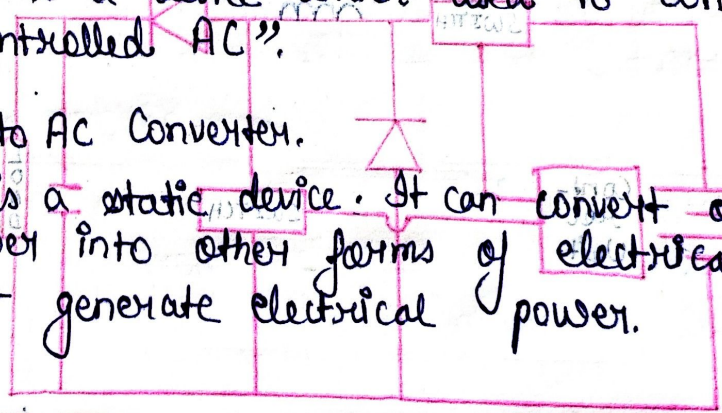 ntrolled AC".
to AC Converter.
s a static device. It can convert
er into other forms of electrica
generate electrical power.